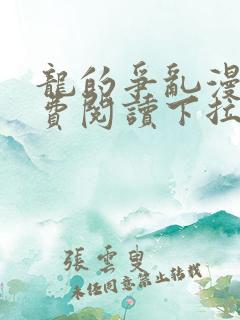 龍的爭亂漫
費閱讀下拉
張雲叟
未經同意禁止轉載